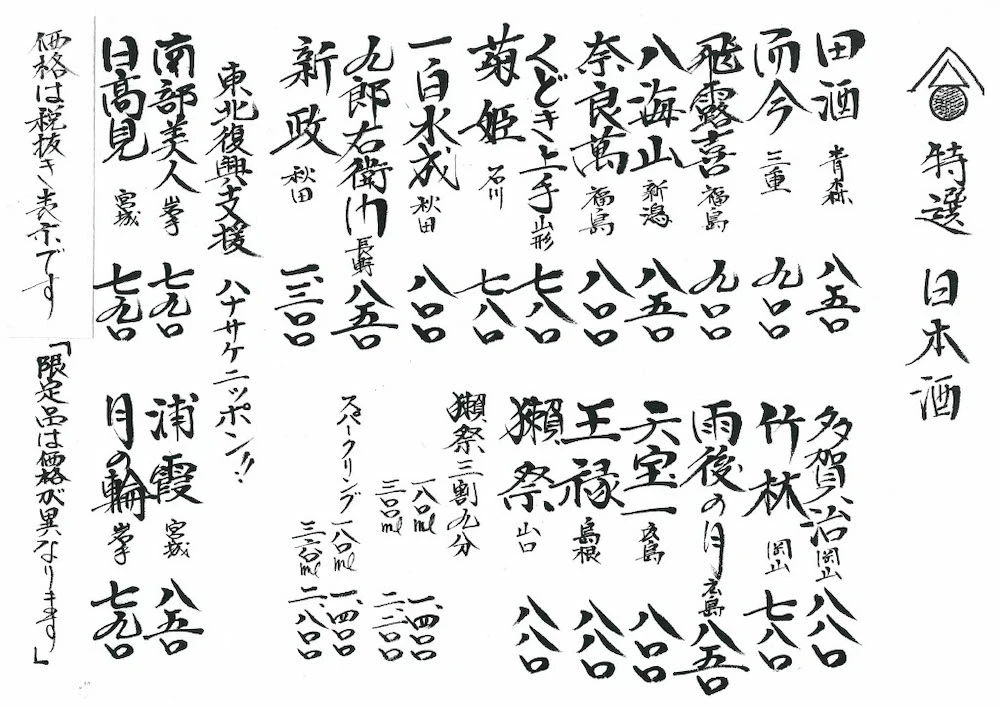 特選 日本酒
田酒 青森 八五〇
而今 三重 九〇〇
飛露喜 福島 九〇〇
八海山 新潟 八五〇
奈良萬 福島 八〇〇
くどき上手 山形 七八〇
菊姫 石川 七八〇
一白水成 秋田 八〇〇
九郎右衛門 長野 八五〇
新政 秋田 一、三〇〇
多賀治 岡山 八八〇
竹林 岡山 七八〇
雨後の月 広島 八五〇
天宝一 広島 八〇〇
王禄 島根 八八〇
獺祭 山口 八八〇
獺祭三割九分
一八〇ml 一、四〇〇
三〇〇ml 二、二〇〇
スパークリング 一八〇ml 一、四〇〇
三六〇ml 二、八〇〇
東北復興支援 ハナサケニッポン!!
南部美人 岩手 七九〇
日高見 宮城 七九〇
浦霞 宮城 八五〇
月の輪 岩手 七九〇
価格は税抜き表示です
「限定品は価格が異なります」